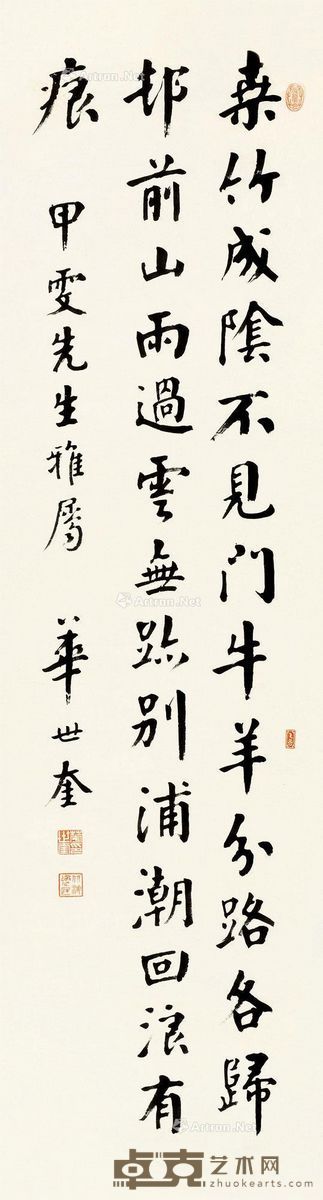 桑竹成陰不見門牛羊分路各歸
邨前山雨過雲無跡別浦潮回浪有
痕
甲雯先生雅屬
華世奎
Artron.Net
Artron.Net
Artron.Net
Artron.Net
卓克艺术网
zhuokearts.com